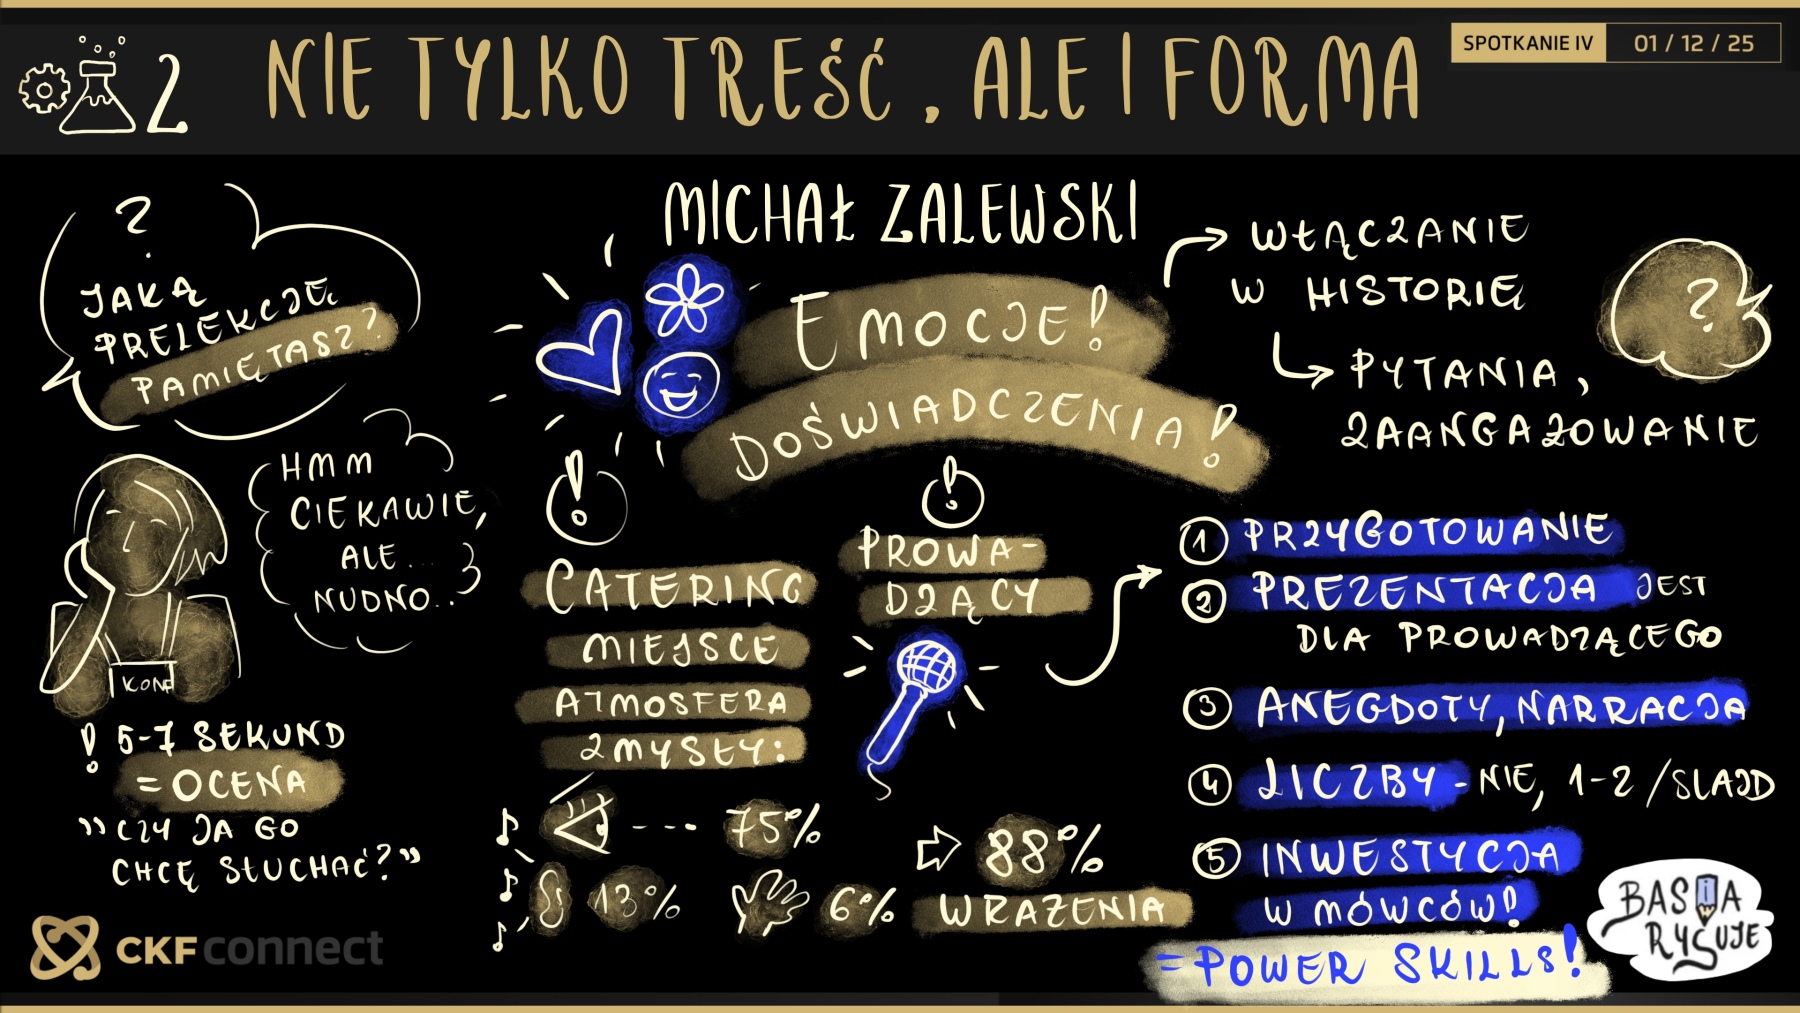 2
NIE TYLKO TREŚĆ, ALE I FORMA
SPOTKANIE IV
01 / 12 / 25
?
JAKĄ
PRELEKCJĘ
PAMIĘTASZ?
HMM
CIEKAWIE,
ALE...
NUDNO...
KONF
! 5-7 SEKUND
= OCENA
"CZY JA GO
CHCĘ SŁUCHAĆ?"
CKF connect
MICHAŁ ZALEWSKI
EMOCJE!
DOŚWIADCZENIA!
WŁĄCZANIE
W HISTORIĘ
PYTANIA,
ZAANGAŻOWANIE
?
!
CATERING
MIEJSCE
ATMOSFERA
ZMYSŁY:
--- 75%
13%
6%
88%
WRAŻENIA
!
PROWA-
DZĄCY
1 PRZYGOTOWANIE
2 PREZENTACJA JEST
DLA PROWADZĄCEGO
3 ANEGDOTY, NARRACJA
4 LICZBY - NIE, 1-2 /SLAJD
5 INWESTYCJA
W MÓWCÓW!
= POWER SKILLS!
BASIA
RYSUJE